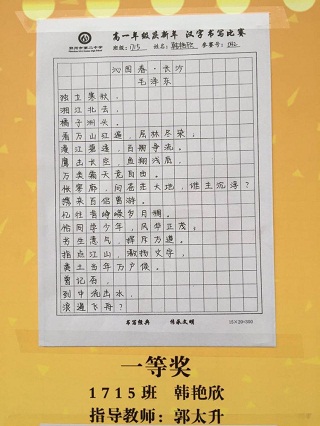 高一年级庆新年 汉字书写比赛
班级: 1715 姓名: 韩艳欣 参赛号:
沁园春·长沙
毛泽东
独立寒秋,
湘江北去,
橘子洲头。
看万山红遍,层林尽染,
漫江碧透,百舸争流。
鹰击长空,鱼翔浅底,
万类霜天竞自由。
怅寥廓,问苍茫大地,谁主沉浮?
携来百侣曾游。
忆往昔峥嵘岁月稠。
恰同学少年,风华正茂;
书生意气,挥斥方遒。
指点江山,激扬文字,
粪土当年万户侯。
曾记否,
到中流击水,
浪遏飞舟?
书写经典 传承文明
15×20=300
一等奖
1715班 韩艳欣
指导教师:郭太升